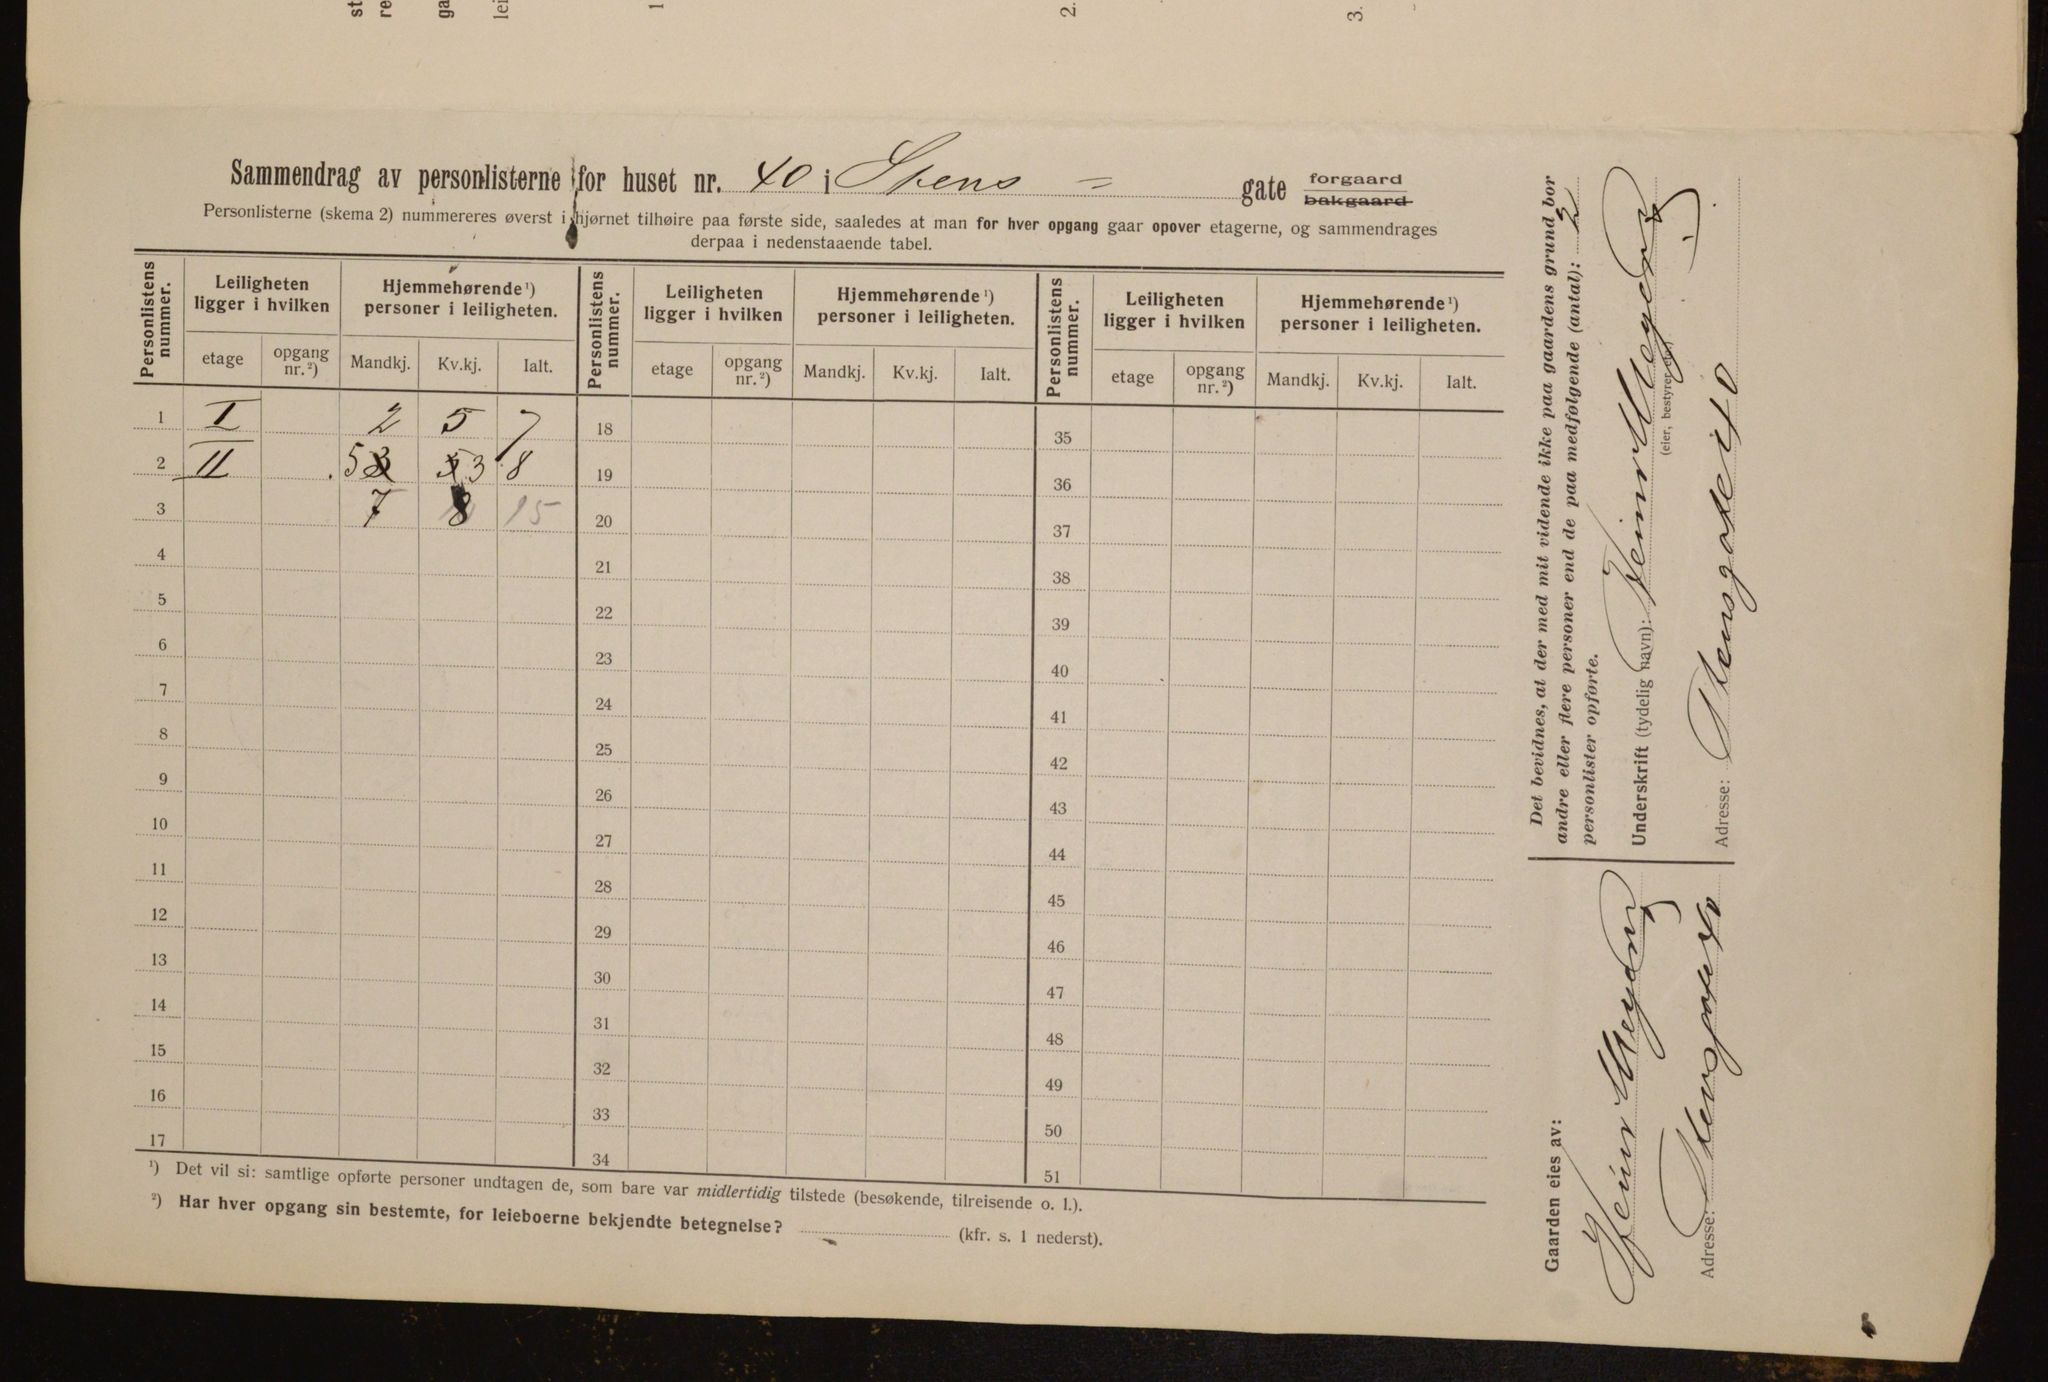 st
re
ga
lei
1
2.
3.
Sammendrag av personlisterne for huset nr. 40 i Stens = gate forgaard
bakgaard
Personlisterne (skema 2) nummereres øverst i hjørnet tilhøire paa første side, saaledes at man for hver opgang gaar opover etagerne, og sammendrages
derpaa i nedenstaaende tabel.
Personlistens nummer. Leiligheten ligger i hvilken Hjemmehørende ¹) personer i leiligheten. Personlistens nummer. Leiligheten ligger i hvilken Hjemmehørende ¹) personer i leiligheten. Personlistens nummer. Leiligheten ligger i hvilken Hjemmehørende ¹) personer i leiligheten.
etage opgang nr. ²) Mandkj. Kv.kj. Ialt. etage opgang nr. ²) Mandkj. Kv.kj. Ialt. etage opgang nr. ²) Mandkj. Kv.kj. Ialt.
1 I 2 5 7 18 35
2 II 5 3 5 3 8 19 36
3 7 8 15 20 37
4 21 38
5 22 39
6 23 40
7 24 41
8 25 42
9 26 43
10 27 44
11 28 45
12 29 46
13 30 47
14 31 48
15 32 49
16 33 50
17 34 51
¹) Det vil si: samtlige opførte personer undtagen de, som bare var midlertidig tilstede (besøkende, tilreisende o. l.).
²) Har hver opgang sin bestemte, for leieboerne bekjendte betegnelse? (kfr. s. 1 nederst).
Det bevidnes, at der med mit vidende ikke paa gaardens grund bor
andre eller flere personer end de paa medfølgende (antal): 2
personlister opførte.
Underskrift (tydelig navn): Heinr Meyer
(eier, bestyrer etc.)
Adresse: Stensgate 40
Gaarden eies av:
Heinr Meyer
Adresse: Stensgate 40